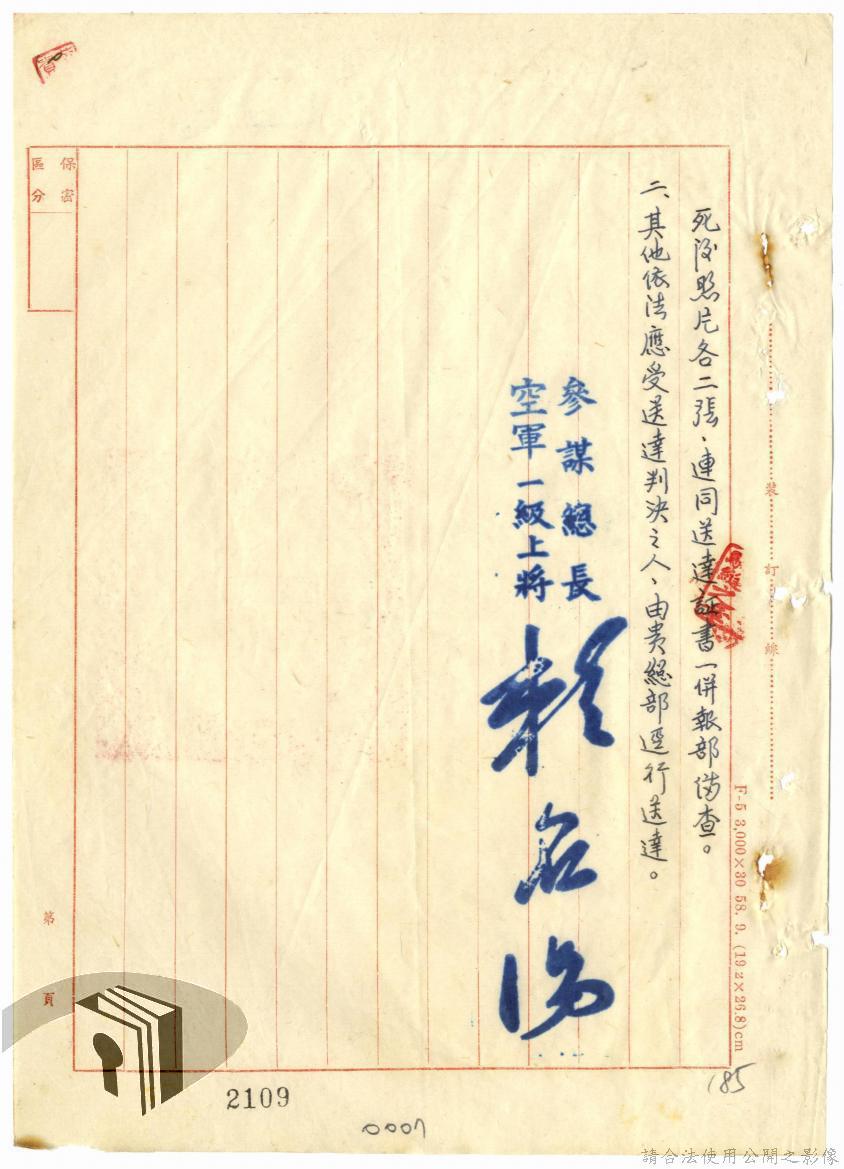 死後照片各二張、連同送達証書一併報部備查。
二、其他依法應受送達判決之人、由貴總部逕行送達。
參謀總長
空軍一級上將
賴名湯
保密
區分
裝訂線
F-5 3,000×30 58. 9. (19.2×26.8)cm
第頁
185
2109
0007
請合法使用公開之影像